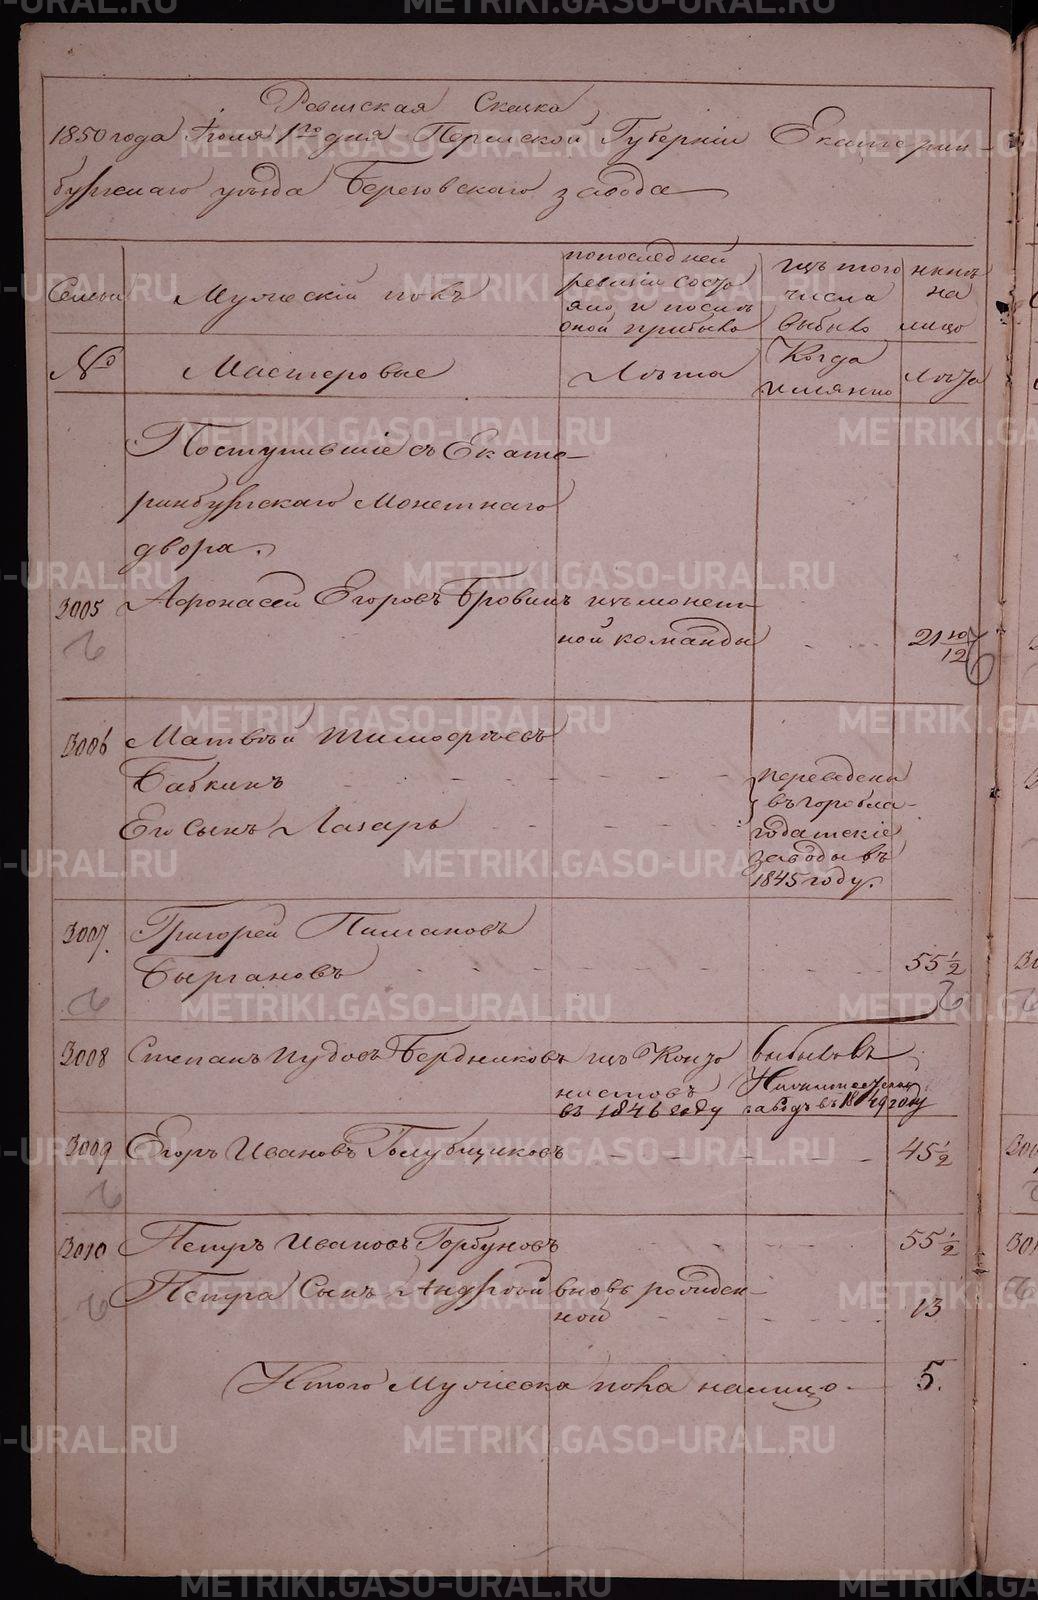 Ревиская Скаска
1850 года Июля 1го дня Пермской Губернiи Екатерин-
бургскаго уѣзда Березовскаго завода
Семьи
Мужескiй полъ
по последней
ревизiи состо
яло и после
оной прибыло
изъ того
числа
выбыло
нынѣ
на
лицо
№
Мастеровые
Лѣта
Когда
имянно
Лѣта
Поступившiе съ Екате-
ринбургскаго Монетнаго
двора.
3005 Афонасей Егоровъ Бровинъ изъ монет-
ной команды 21 10/12
3006 Матвѣй Тимофѣевъ
Бабкинъ
Его Сынъ Лазарь
переведены
въ горобла-
годатскiе
заводы въ
1845 году.
3007. Григорей
Бургановъ 55 ½
3008 Степанъ Иудовъ Бердниковъ изъ Конто
нистовъ
въ 1846 году
выбылъ въ
заводъ въ 1849 году
3009 Егоръ Ивановъ Голубщиковъ 45 ½
3010 Петръ Ивановъ Горбуновъ 55 ½
Петра Сынъ Андрей вновь рожден-
ной 13
Итого Мужеска пола налицо 5.
METRIKI.GASO-URAL.RU